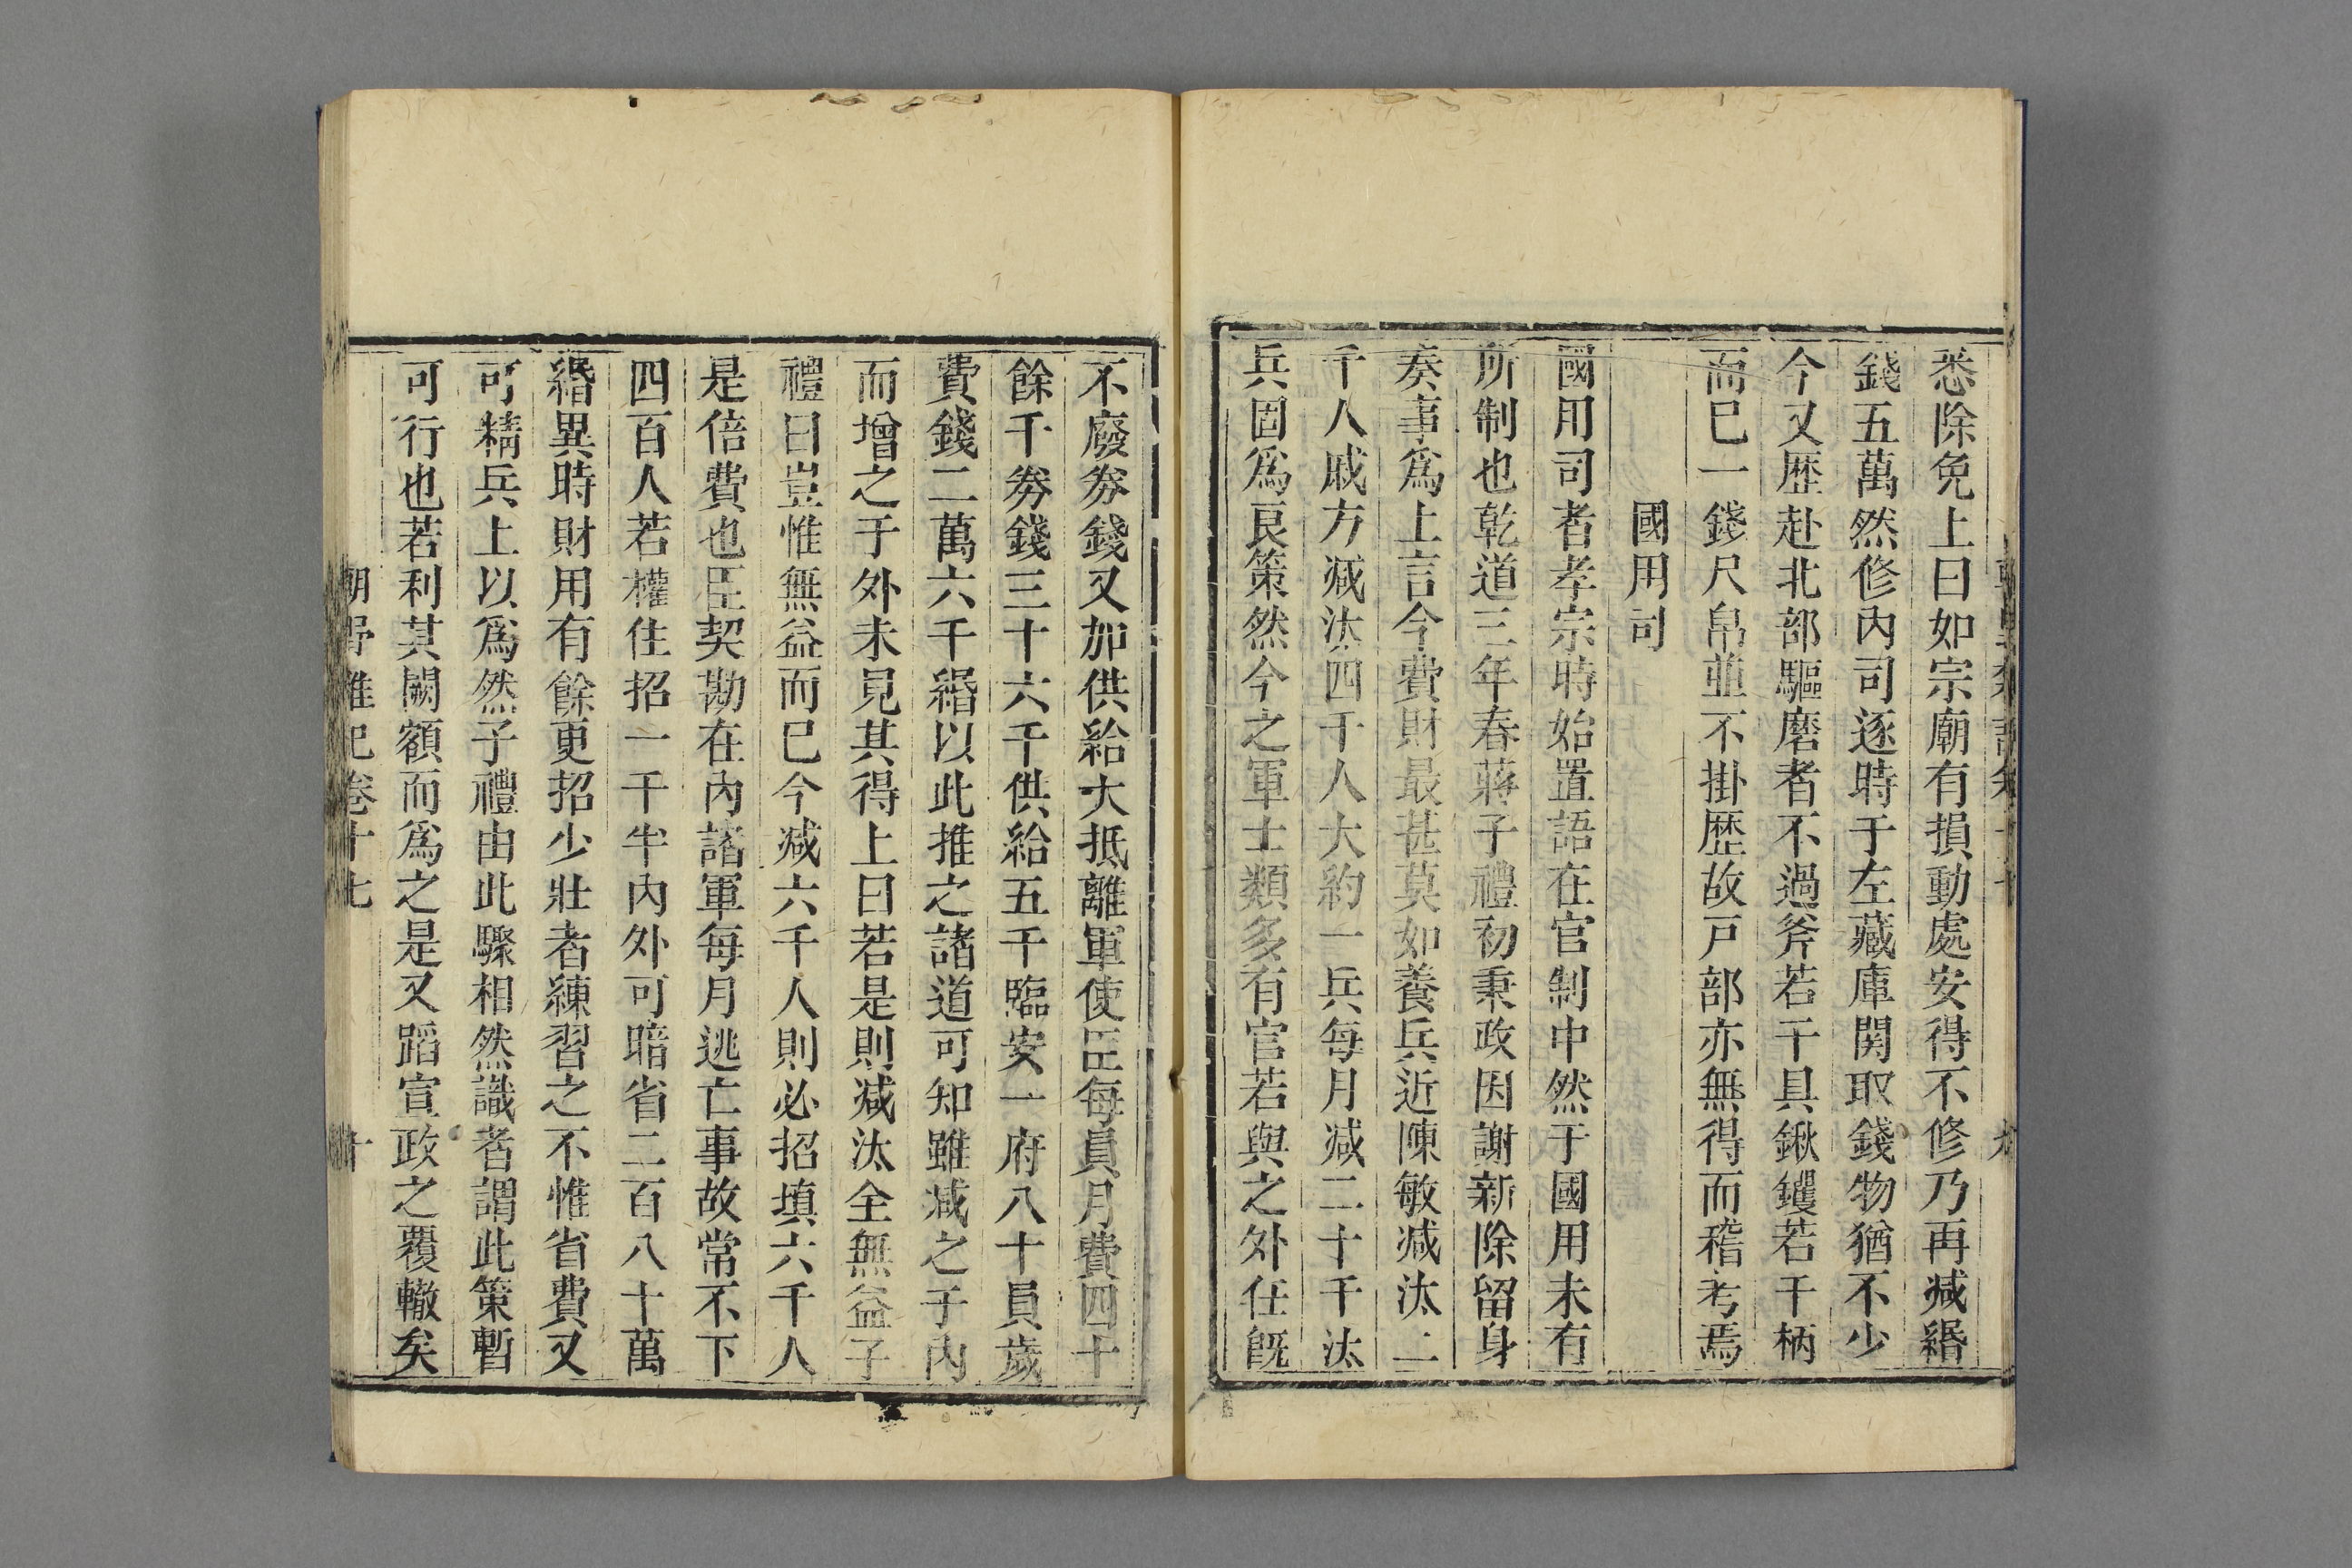 悉除免上曰如宗廟有損動處安得不修乃再減緡
錢五萬然修內司逐時于左藏庫関取錢物猶不少
今又歴赴北部驅磨者不過斧若干具鍬钁若干柄
而巳一錢尺帛並不掛歴故戸部亦無得而稽考焉
國用司
國用司者孝宗時始置語在官制中然于國用未有
所制也乾道三年春蔣子禮初秉政因謝新除留身
奏事爲上言今費財最甚莫如養兵近陳敏减汰二
千人戚方减汰四千人大約一兵每月减二十千汰
兵固爲良策然今之軍士類多有官若與之外任旣
不廢券錢又加供給大抵離軍使臣每員月費四十
餘千券錢三十六千供給五千臨安一府八十員歲
費錢二萬六千緡以此推之諸道可知雖减之于內
而增之于外未見其得上曰若是則减汰全無益子
禮曰豈惟無益而巳今减六千人則必招填六千人
是倍費也臣契勘在內諸軍每月逃亡事故常不下
四百人若權住招一千半內外可暗省二百八十萬
緡異時財用有餘更招少壯者練習之不惟省費又
可精兵上以爲然子禮由此驟相然識者謂此策暫
可行也若利其闕額而爲之是又蹈宣政之覆轍矣
朝野雜記卷十七
十